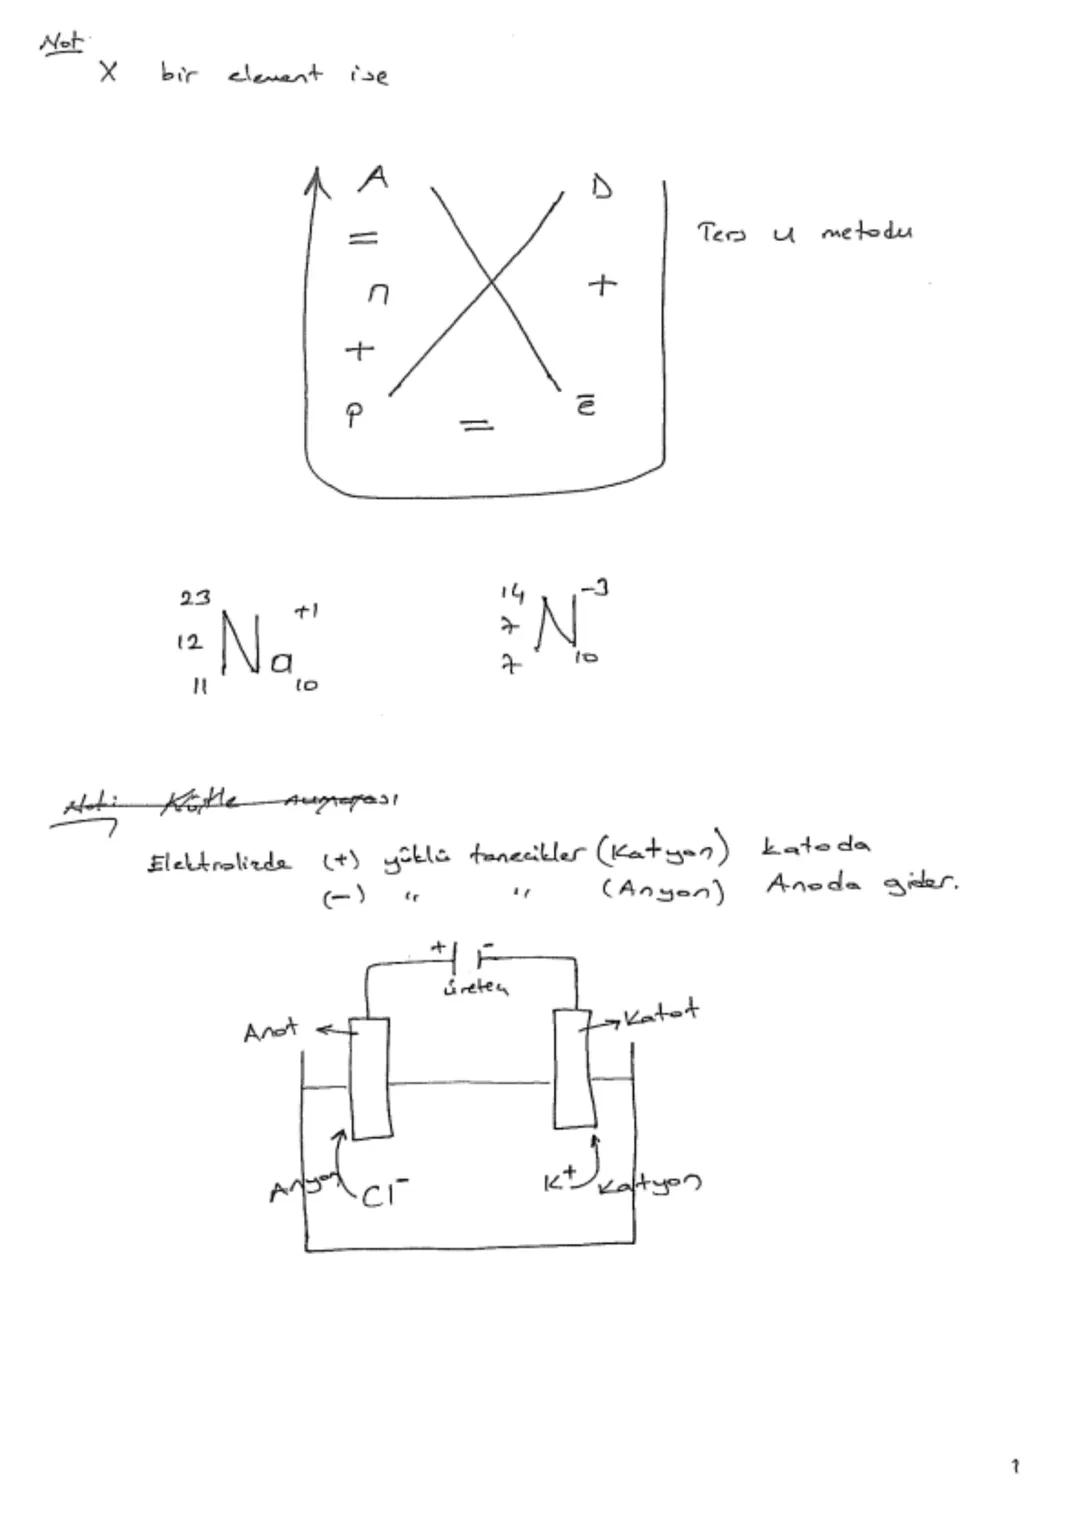 Not
X bir element ise
A D
= Ters u metodu
n +
+
P = ē
23 +1 14 -3
12 Na 7 N
11 10 7 10
Not: Kütle numarası
Elektrolizde (+) yüklü tanecikler (Katyon) katoda
(-) " " (Anyon) Anoda gider.
+ -
üreteç
Anot Katot
Anyon Cl⁻ K⁺ Katyon
1